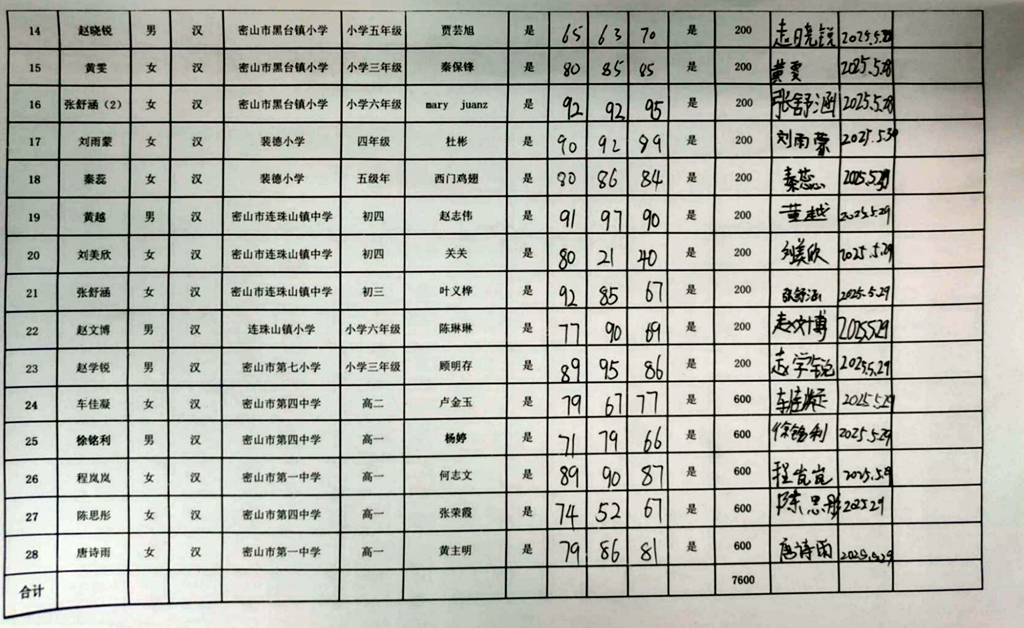 14 赵晓锐 男 汉 密山市黑台镇小学 小学五年级 贾芸旭 是 65 63 70 是 200 赵晓锐 2025.5.28
15 黄雯 女 汉 密山市黑台镇小学 小学三年级 秦保锋 是 80 85 85 是 200 黄雯 2025.5.28
16 张舒涵（2） 女 汉 密山市黑台镇小学 小学六年级 mary juanz 是 92 92 95 是 200 张舒涵 2025.5.28
17 刘雨蒙 女 汉 裴德小学 四年级 杜彬 是 90 92 89 是 200 刘雨蒙
18 秦蕊 女 汉 裴德小学 五级年 西门鸡翅 是 80 86 84 是 200 秦蕊
19 黄越 男 汉 密山市连珠山镇中学 初四 赵志伟 是 91 97 90 是 200 黄越 2025.5.29
20 刘美欣 女 汉 密山市连珠山镇中学 初四 关关 是 80 21 40 是 200 刘美欣 2025.5.29
21 张舒涵 女 汉 密山市连珠山镇中学 初三 叶义桦 是 92 85 67 是 200 张舒涵 2025.5.29
22 赵文博 男 汉 连珠山镇小学 小学六年级 陈琳琳 是 77 90 69 是 200 赵文博 2025529
23 赵学锐 男 汉 密山市第七小学 小学三年级 顾明存 是 89 95 86 是 200 赵学锐 2025.5.29
24 车佳凝 女 汉 密山市第四中学 高二 卢金玉 是 79 67 77 是 600 车佳凝 2025.5.29
25 徐铭利 男 汉 密山市第四中学 高一 杨婷 是 71 79 66 是 600 徐铭利 2025.5.29
26 程岚岚 女 汉 密山市第一中学 高一 何志文 是 89 90 87 是 600 程岚岚
27 陈思彤 女 汉 密山市第四中学 高一 张荣霞 是 74 52 67 是 600 陈思彤
28 唐诗雨 女 汉 密山市第一中学 高一 黄主明 是 79 86 81 是 600 唐诗雨 2025.5.29
合计 7600